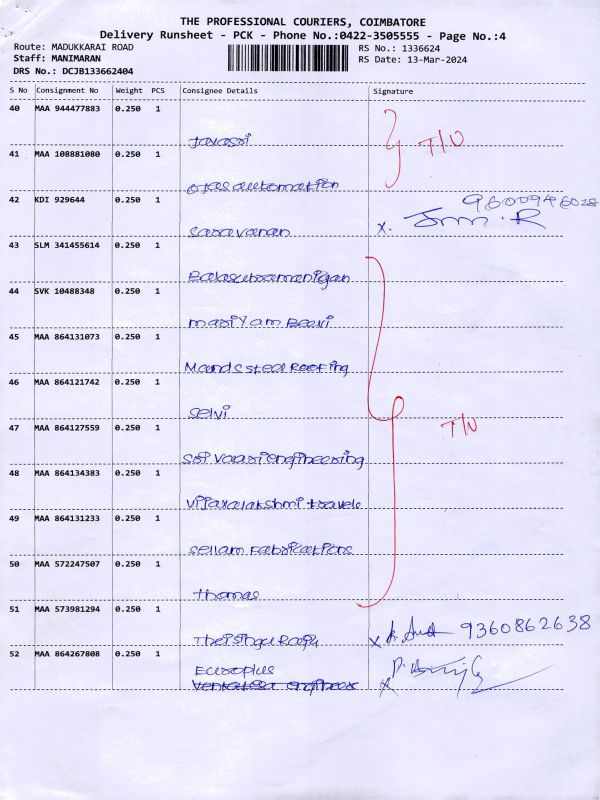 THE PROFESSIONAL COURIERS, COIMBATORE
Delivery Runsheet - PCK - Phone No.:0422-3505555 - Page No.:4
Route: MADUKKARAI ROAD RS No.: 1336624
Staff: MANIMARAN RS Date: 13-Mar-2024
DRS No.: DCJB133662404
S No Consignment No Weight PCS Consignee Details Signature
40 MAA 944477883 0.250 1
Jayasri T/U
41 MAA 108881080 0.250 1
ojas automation
42 KDI 929644 0.250 1 9600946028
Saravanan x.
43 SLM 341455614 0.250 1
Balasubramanigan
44 SVK 10488348 0.250 1
mariyam Beevi
45 MAA 864131073 0.250 1
Mandssteel Roofing
46 MAA 864121742 0.250 1
Selvi
47 MAA 864127559 0.250 1 T/U
Sri vaari engineering
48 MAA 864134383 0.250 1
vijayalakshmi travels
49 MAA 864131233 0.250 1
Sellam Fabrications
50 MAA 572247507 0.250 1
thomas
51 MAA 573981294 0.250 1
x 9360862638
52 MAA 864267808 0.250 1
Europlus
x